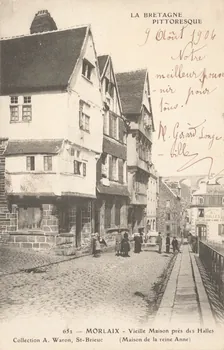 LA BRETAGNE
PITTORESQUE
9 Août 1906
Notre
meilleur souve
nir pour
tous.
M.
651 - MORLAIX - Vieille Maison près des Halles
Collection A. Waron, St-Brieuc (Maison de la reine Anne)